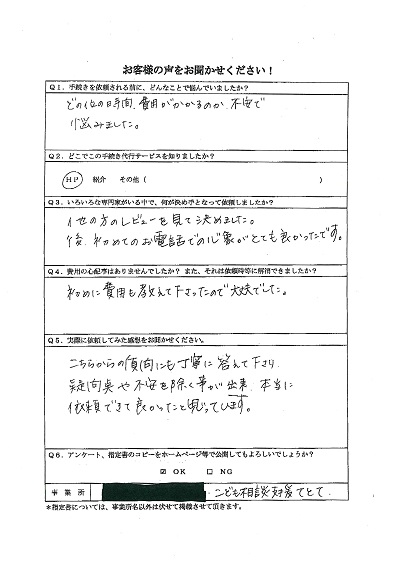 お客様の声をお聞かせください！
Q1．手続きを依頼される前に、どんなことで悩んでいましたか？
どの位の時間、費用がかかるのか、不安で
悩みました。
Q2．どこでこの手続き代行サービスを知りましたか？
HP 紹介 その他（ ）
Q3．いろいろな専門家がいる中で、何が決め手となって依頼しましたか？
他の方のレビューを見て決めました。
後、初めてのお電話での印象がとても良かったです。
Q4．費用の心配事はありませんでしたか？ また、それは依頼時等に解消できましたか？
初めに費用も教えて下さったので大丈夫でした。
Q5．実際に依頼してみた感想をお聞かせください。
こちらからの質問にも丁寧に答えて下さり、
疑問点や不安を除く事が出来、本当に
依頼できて良かったと思っています。
Q6．アンケート、指定書のコピーをホームページ等で公開してもよろしいでしょうか？
☑ OK □ NG
事業所 こども相談支援てとて
*指定書については、事業所名以外は伏せて掲載させて頂きます。